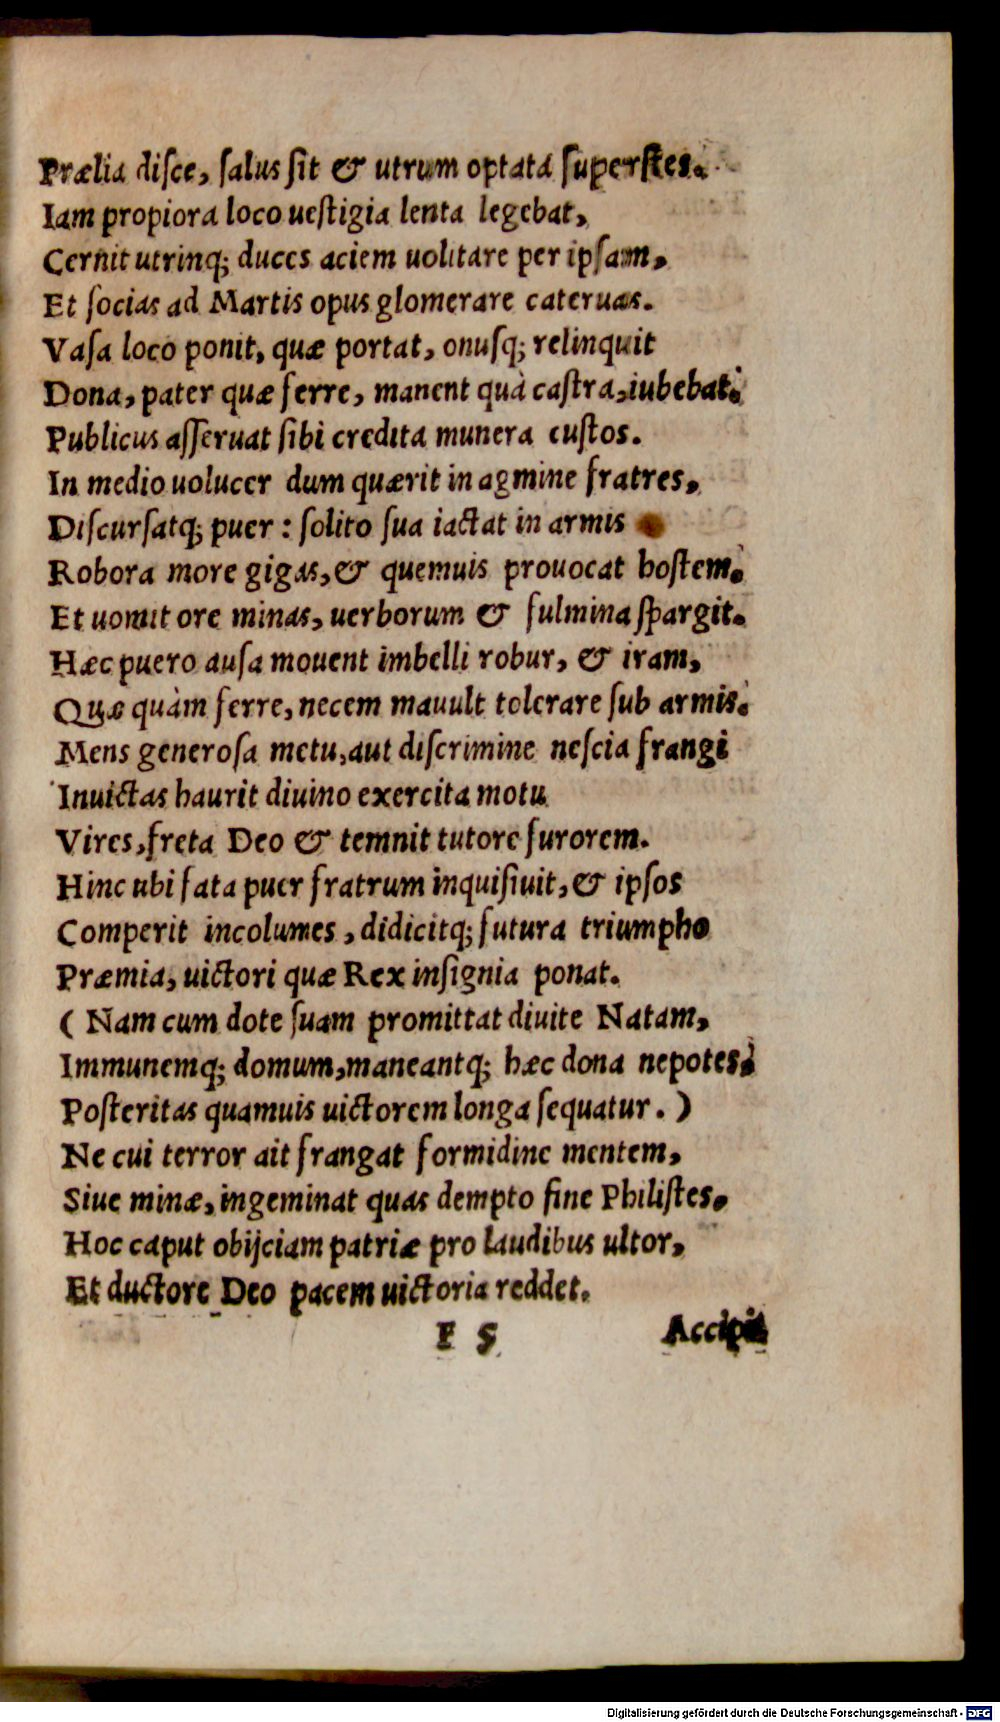 Prælia disce, salus sit & utrum optata superstes.
Iam propiora loco uestigia lenta legebat,
Cernit utrinq; duces aciem uolitare per ipsam,
Et socias ad Martis opus glomerare cateruas.
Vasa loco ponit, quæ portat, onusq; relinquit
Dona, pater quæ ferre, manent quà castra, iubebat.
Publicus asseruat sibi credita munera custos.
In medio uolucer dum quærit in agmine fratres,
Discursatq; puer : solito sua iactat in armis
Robora more gigas, & quemuis prouocat hostem.
Et uomit ore minas, uerborum & fulmina spargit.
Hæc puero ausa mouent imbelli robur, & iram,
Quæ quàm ferre, necem mauult tolerare sub armis.
Mens generosa metu, aut discrimine nescia frangi
Inuictas haurit diuino exercita motu
Vires, freta Deo & temnit tutore furorem.
Hinc ubi fata puer fratrum inquisiuit, & ipsos
Comperit incolumes, didicitq; futura triumpho
Præmia, uictori quæ Rex insignia ponat.
( Nam cum dote suam promittat diuite Natam,
Immunemq; domum, maneantq; hæc dona nepotes,
Posteritas quamuis uictorem longa sequatur. )
Ne cui terror ait frangat formidine mentem,
Siue minæ, ingeminat quas dempto fine Philistes.
Hoc caput obijciam patriæ pro laudibus ultor,
Et ductore Deo pacem uictoria reddet.
F 5 Accipit
Digitalisierung gefördert durch die Deutsche Forschungsgemeinschaft - DFG